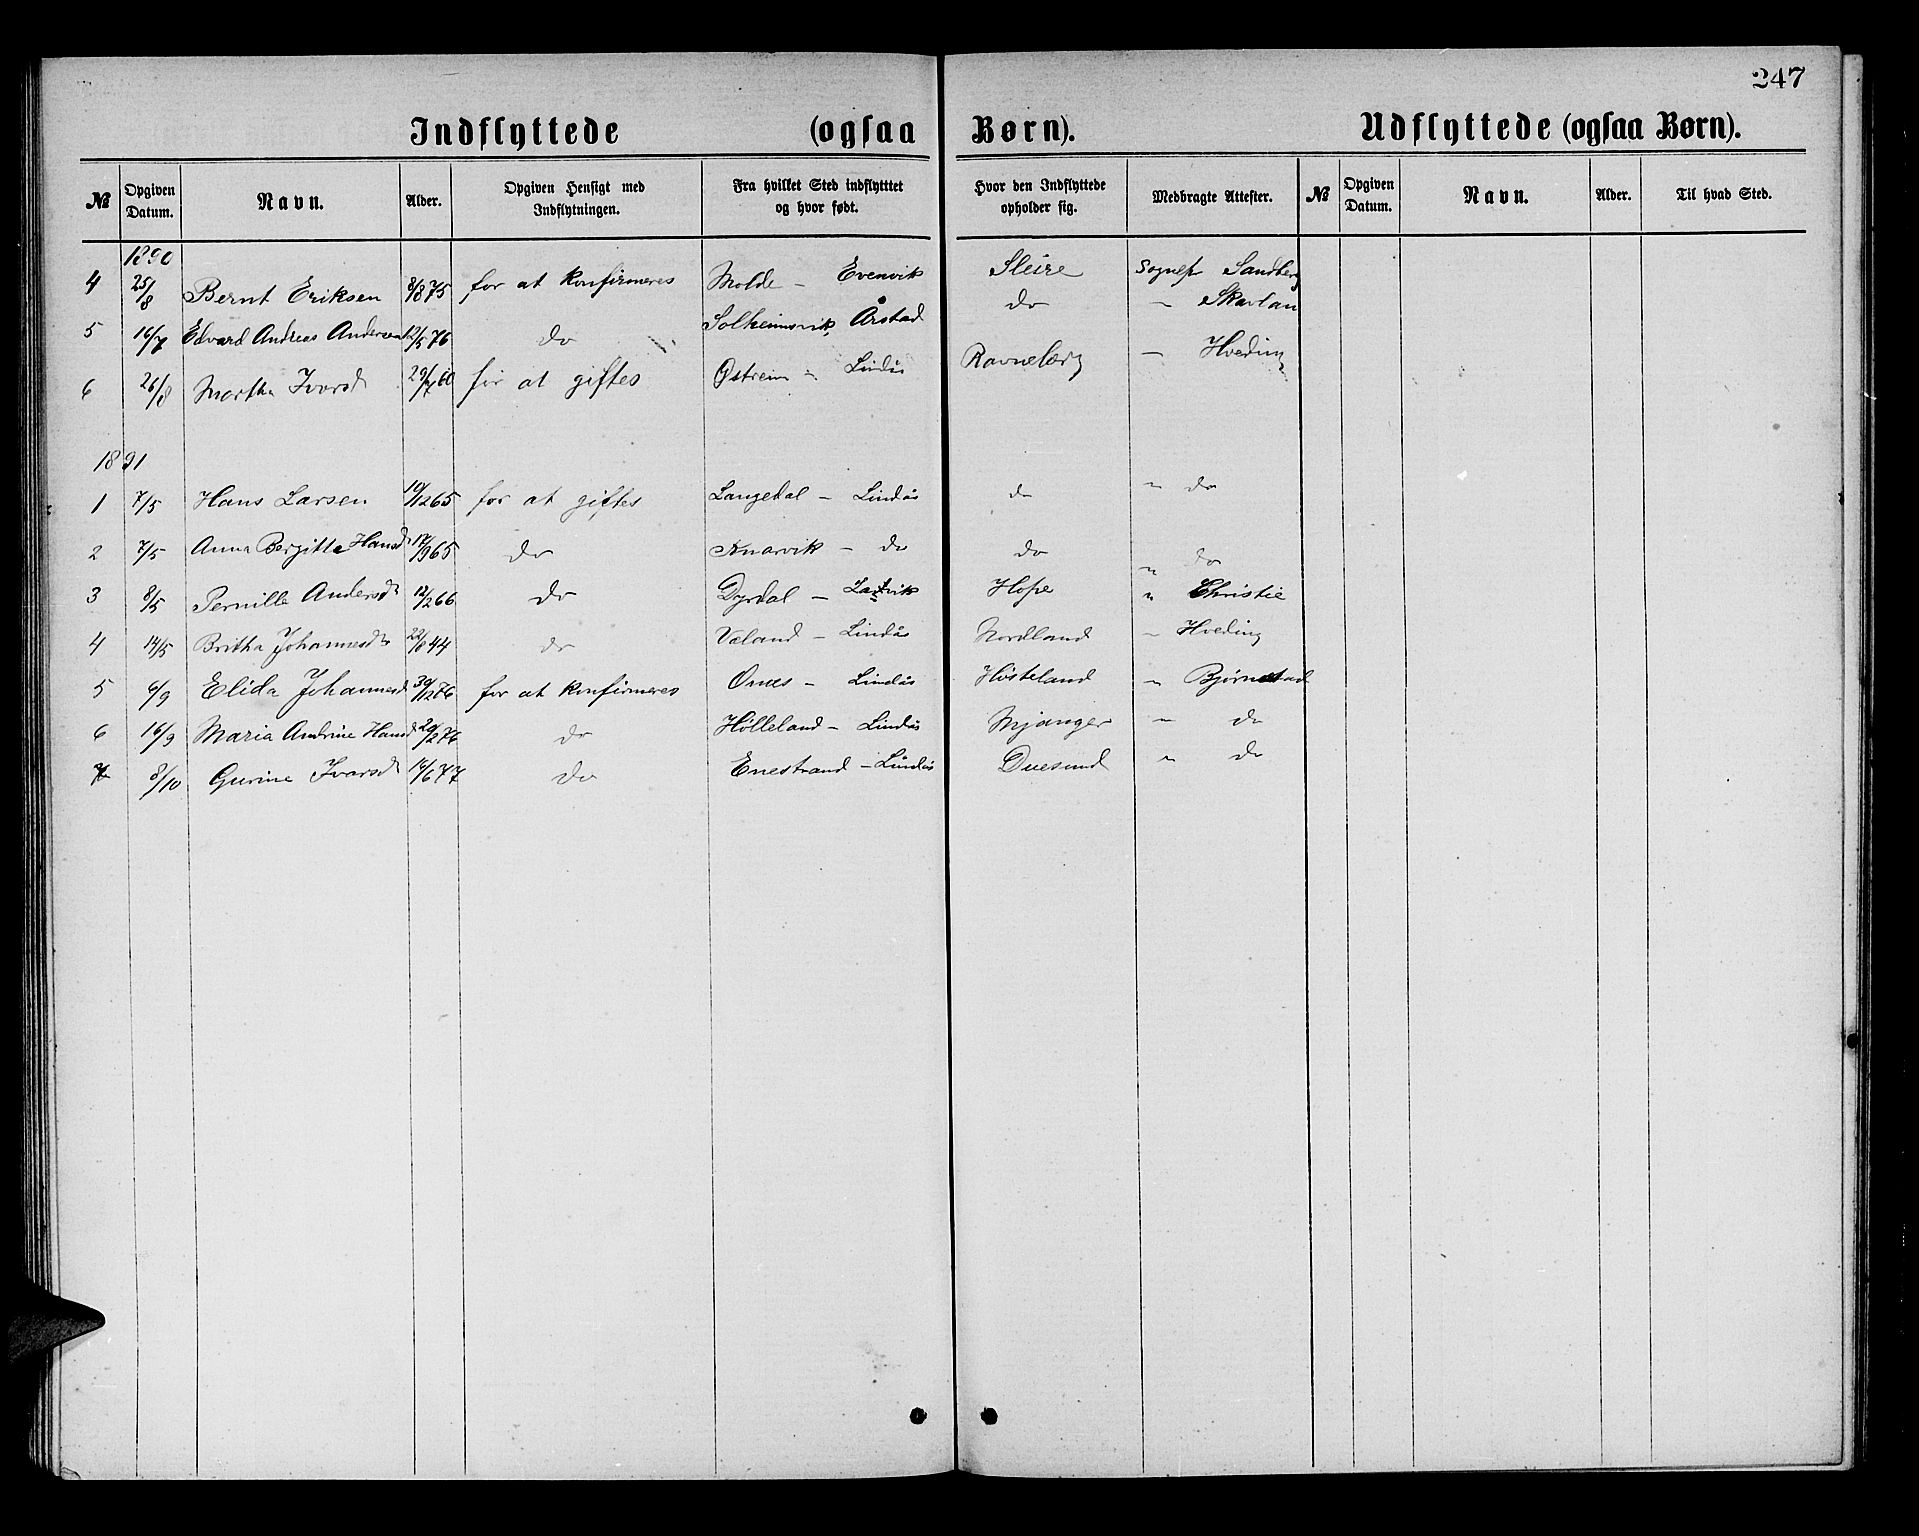 247
Indflyttede (ogsaa Børn). Udflyttede (ogsaa Børn).
№ Opgiven Datum. Navn. Alder. Opgiven Hensigt med Indflytningen. Fra hvilket Sted indflytttet og hvor født. Hvor den Indflyttede opholder sig. Medbragte Attester. № Opgiven Datum. Navn. Alder. Til hvad Sted.
1890
4 25/8 Bernt Eriksen 8/8 75 for at konfirmeres Molde - Evenvik Sleire Sognepr Sandberg
5 16/7 Edvard Andreas Andersen 12/5 76 do Solheimsvik, Årstad do " Skavlan
6 26/8 Martha Ivarsd 29/7 60 for at giftes Østreim - Lindås Ravneberg - Hveding
1891
1 7/5 Hans Larsen 10/12 65 for at giftes Langedal - Lindås do " do
2 7/5 Anna Bergitte Hansd 17/9 65 do Knarvik - do do " do
3 8/5 Pernille Andersd 12/2 66 do Dyrdal - Lavik Hope " Christie
4 14/5 Britha Johannesd 22/8 44 do Veland - Lindås Nordland - Hveding
5 6/9 Elida Johannesd 30/12 76 for at konfirmeres Ones - Lindås Høsteland " Bjørnstad
6 16/9 Maria Andrine Hansd 20/2 76 do Hølleland - Lindås Mjanger " do
7 8/10 Gurine Ivarsd 14/6 77 do Enestrand - Lindås Duesund " do